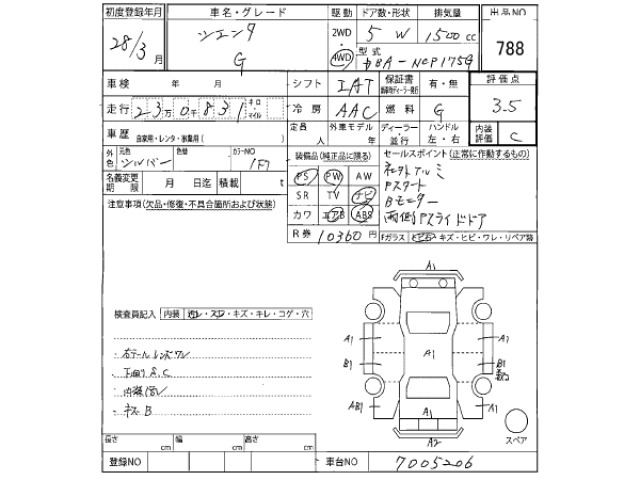 初度登録年月 車名・グレード 駆動 ドア数・形状 排気量 出品NO
28/3 月 シエンタ G 2WD 4WD 5 W 1500 cc 788
型式 DBA-NCP175G
車検 年 月 シフト IAT 保証書 有・無 評価点
走行 23万0831 キロ マイル 冷房 AAC 燃料 G 3.5
車歴 自家用・レンタ・事業用( ) 定員 人 外車モデル 年 ディーラー 並行 ハンドル 左・右 内装評価 C
外色 元色 シルバー 色替 カラーNO 1F7 装備品(純正品に限る) セールスポイント(正常に作動するもの)
名義変更期限 月 日迄 積載 t PS PW AW
注意事項(欠品・修復・不具合箇所および状態) SR TV ナビ Pスタート
カワ エアB ABS Bモニター
両側Pスライドドア
R券 10360 円 Fガラス 飛石・キズ・ヒビ・ワレ・リペア跡
検査員記入 内装 キズ・キレ・コゲ・穴
A1
A1 A1 A1
B1 B1
AB1 A1 A1
A2
右テールレンズワレ
下回りS.C
キズB
スペア
長さ cm 幅 cm 高さ cm
登録NO 車台NO 7005206